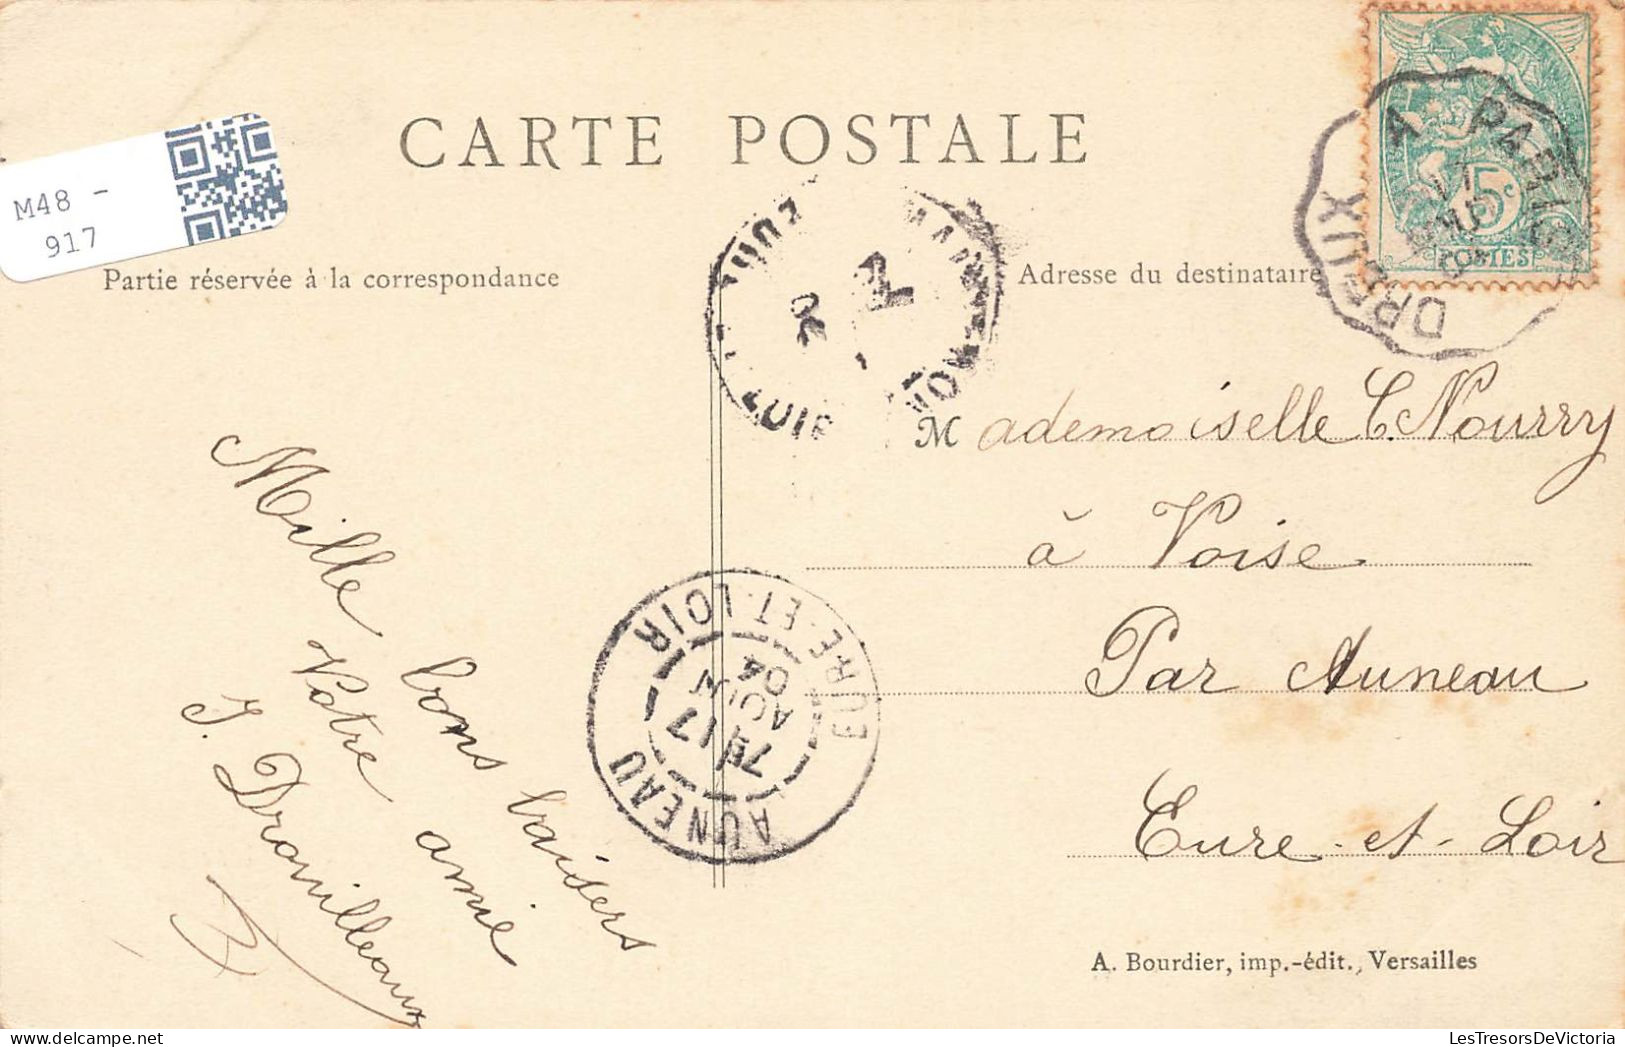 CARTE POSTALE
M48 -
917
Partie réservée à la correspondance
Adresse du destinataire
5c
POSTES
DREUX A PARIS
Mademoiselle C. Nourry
à Voise
Par Auneau
Eure-et-Loir
Mille bons baisers
Votre amie
J. Drouilleaux
AUNEAU
EURE-ET-LOIR
7E 17
AOUT
04
A. Bourdier, imp.-édit., Versailles
LesTresorsDeVictoria.com